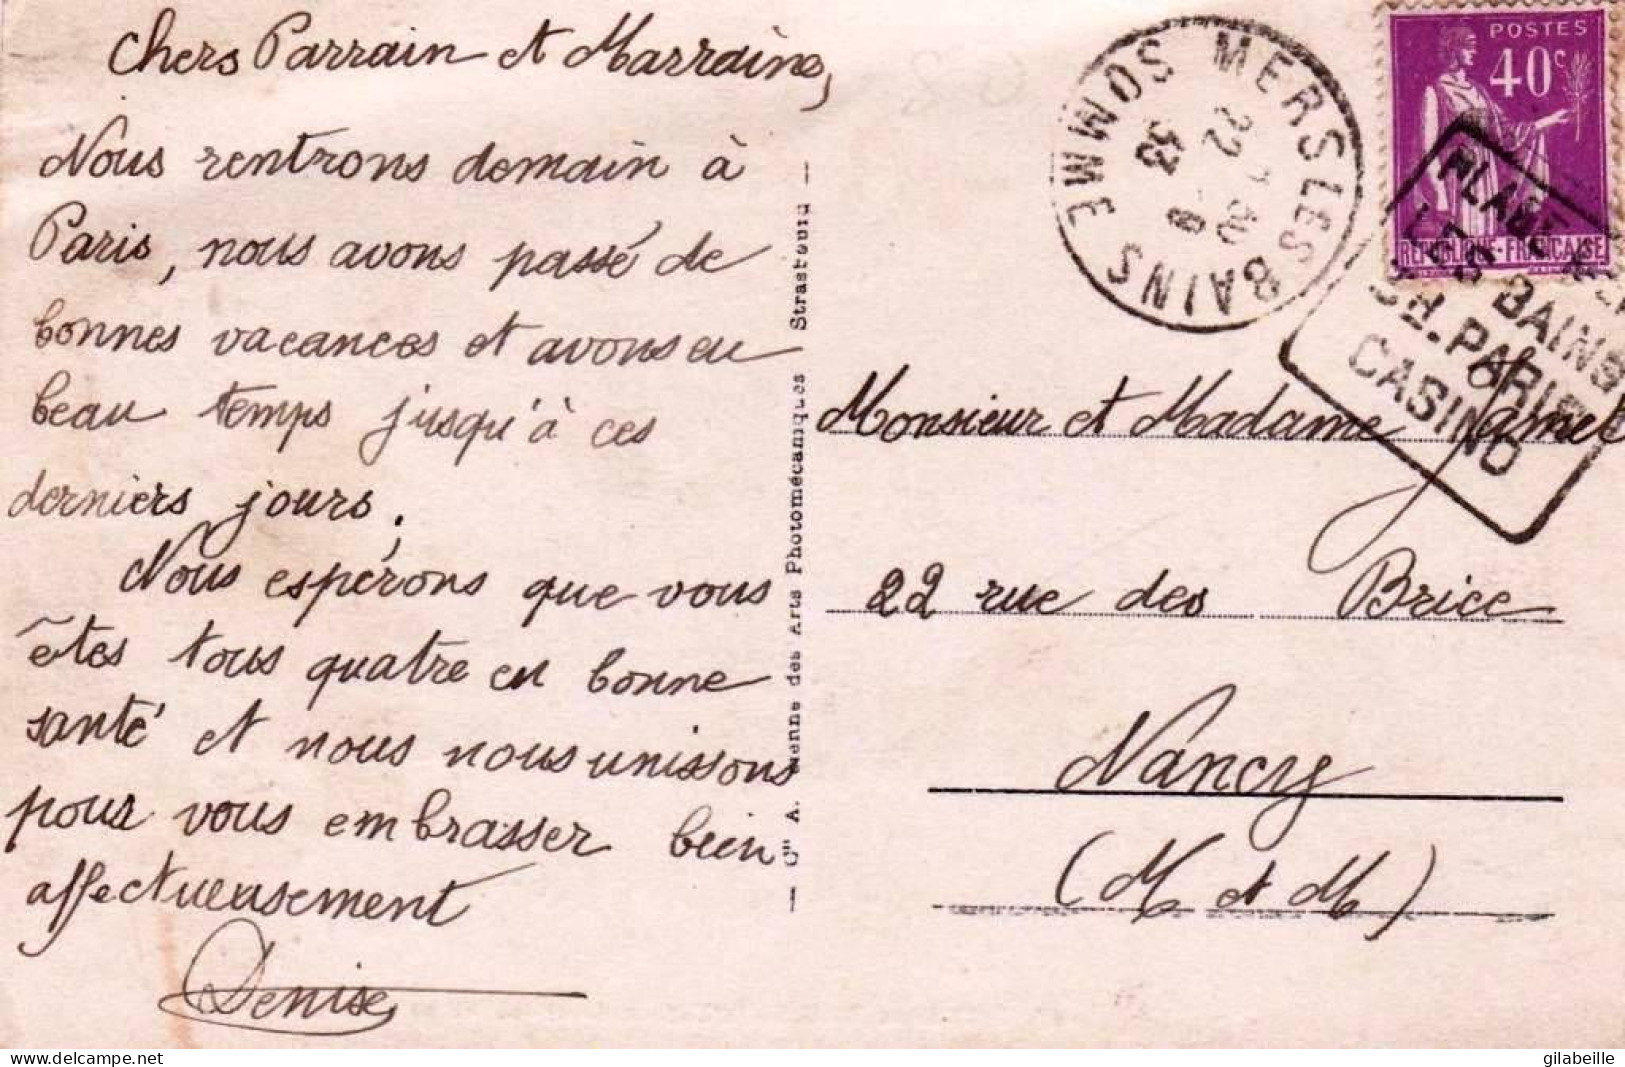 Chers Parrain et Marraine,
Nous rentrons demain à
Paris, nous avons passé de
bonnes vacances et avons eu
beau temps jusqu'à ces
derniers jours.
Nous espérons que vous
êtes tous quatre en bonne
santé et nous nous unissons
pour vous embrasser bien
affectueusement
Denise
— Cie A. des Arts Photomécaniques Strasbourg —
MERS LES BAINS SOMME
22
8
POSTES
40c
REPUBLIQUE-FRANÇAISE
LES BAINS
PARIS
CASINO
Monsieur et Madame Jamet
22 rue des Brice
Nancy
(M et M)
delcampe.net
gilabeille